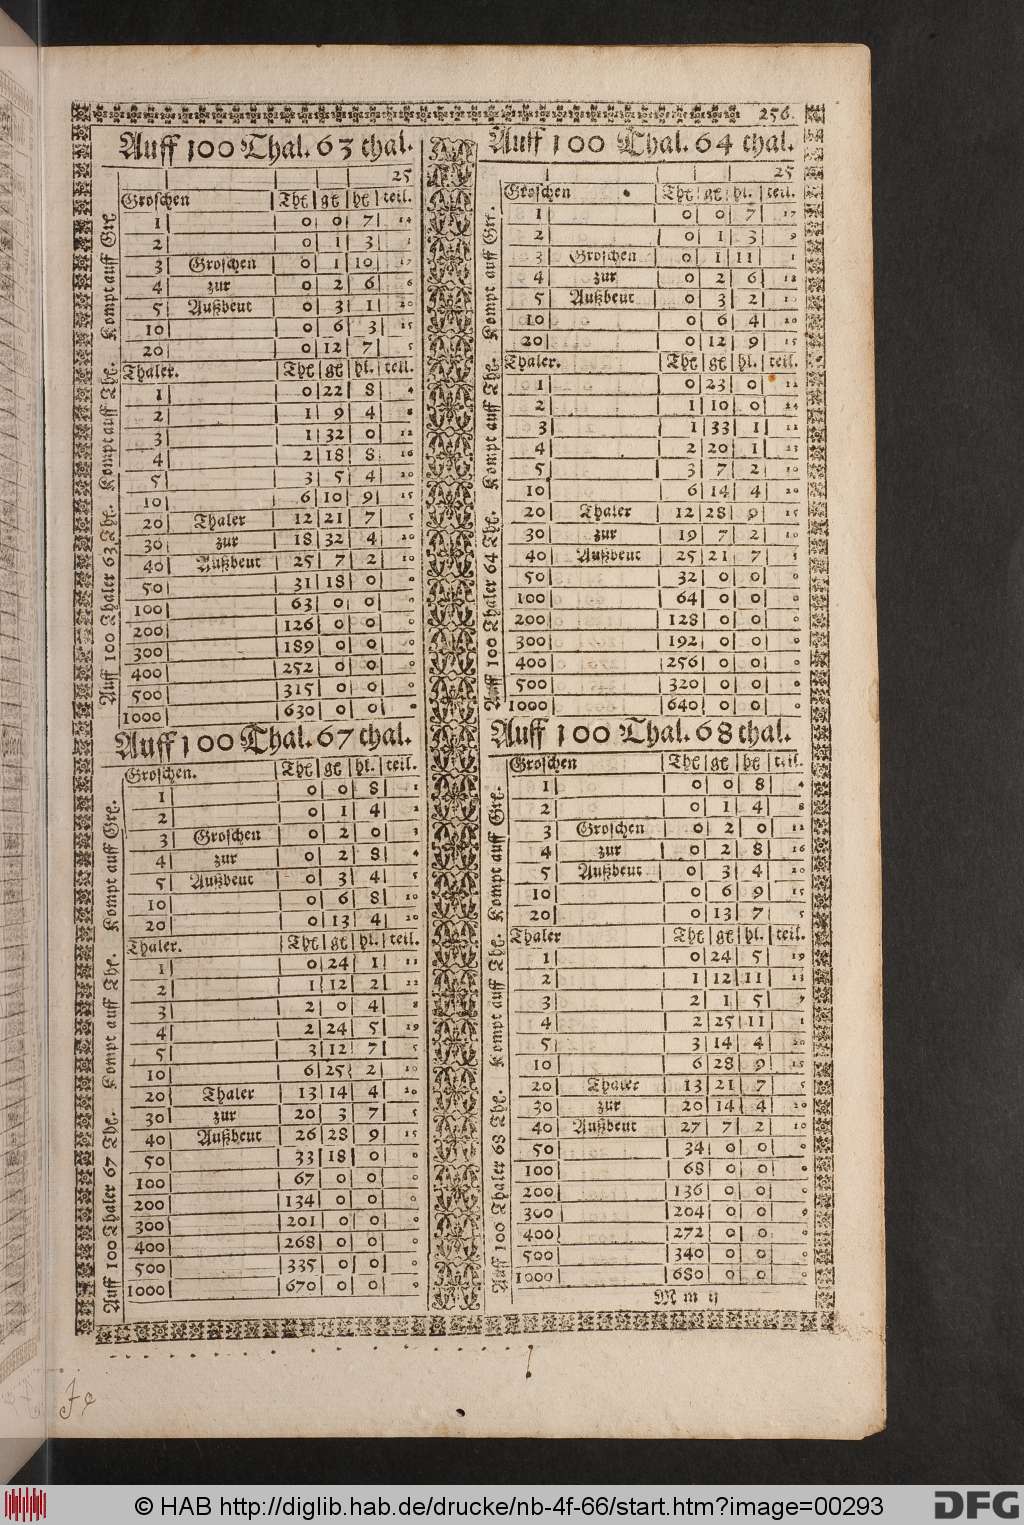 256.
Auff 100 Thal. 63 thal.
25
Groschen Thl gl hl teil.
1 0 0 7 14
2 0 1 3 1
3 Groschen 0 1 10 17
4 zur 0 2 6 6
5 Außbeut 0 3 1 20
10 0 6 3 15
20 0 12 7 5
Thaler. Thl gl hl. teil.
1 0 22 8 4
2 1 9 4 8
3 1 32 0 12
4 2 18 8 16
5 3 5 4 20
10 6 10 9 15
20 Thaler 12 21 7 5
30 zur 18 32 4 20
40 Außbeut 25 7 2 10
50 31 18 0 0
100 63 0 0 0
200 126 0 0 0
300 189 0 0 0
400 252 0 0 0
500 315 0 0 0
1000 630 0 0 0
Auff 100 Thaler 63 Thl. Kompt auff Thl. Kompt auff Grl
Auff 100 Thal. 64 thal.
25
Groschen Thl gl hl. teil.
1 0 0 7 17
2 0 1 3 9
3 Groschen 0 1 11 1
4 zur 0 2 6 18
5 Außbeut 0 3 2 10
10 0 6 4 20
20 0 12 9 15
Thaler. Thl gl hl. teil.
1 0 23 0 12
2 1 10 0 24
3 1 33 1 11
4 2 20 1 23
5 3 7 2 10
10 6 14 4 20
20 Thaler 12 28 9 15
30 zur 19 7 2 10
40 Außbeut 25 21 7 5
50 32 0 0 0
100 64 0 0 0
200 128 0 0 0
300 192 0 0 0
400 256 0 0 0
500 320 0 0 0
1000 640 0 0 0
Auff 100 Thaler 64 Thl. Kompt auff Thl. Kompt auff Grl.
Auff 100 Thal. 67 thal.
Groschen. Thl gl hl. teil.
1 0 0 8 1
2 0 1 4 2
3 Groschen 0 2 0 3
4 zur 0 2 8 4
5 Außbeut 0 3 4 5
10 0 6 8 10
20 0 13 4 20
Thaler. Thl gl hl. teil.
1 0 24 1 11
2 1 12 2 22
3 2 0 4 8
4 2 24 5 19
5 3 12 7 5
10 6 25 2 10
20 Thaler 13 14 4 20
30 zur 20 3 7 5
40 Außbeut 26 28 9 15
50 33 18 0 0
100 67 0 0 0
200 134 0 0 0
300 201 0 0 0
400 268 0 0 0
500 335 0 0 0
1000 670 0 0 0
Auff 100 Thaler 67 Thl. Kompt auff Thl. Kompt auff Grl.
Auff 100 Thal. 68 thal.
Groschen Thl gl hl teil.
1 0 0 8 4
2 0 1 4 8
3 Groschen 0 2 0 12
4 zur 0 2 8 16
5 Außbeut 0 3 4 20
10 0 6 9 15
20 0 13 7 5
Thaler Thl gl hl. teil.
1 0 24 5 19
2 1 12 11 13
3 2 1 5 7
4 2 25 11 1
5 3 14 4 20
10 6 28 9 15
20 Thaler 13 21 7 5
30 zur 20 14 4 20
40 Außbeut 27 7 2 10
50 34 0 0 0
100 68 0 0 0
200 136 0 0 0
300 204 0 0 0
400 272 0 0 0
500 340 0 0 0
1000 680 0 0 0
Auff 100 Thaler 68 Thl. Kompt auff Thl. Kompt auff Grl.
M m ij
© HAB http://diglib.hab.de/drucke/nb-4f-66/start.htm?image=00293
DFG